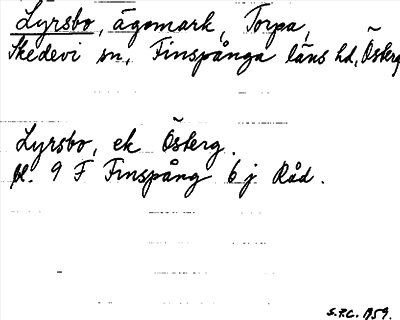 Lyrsbo, ägomark, Torpa,
Skedevi sn, Finspånga läns hd, Österg
Lyrsbo, ek Österg.
bl. 9 F Finspång 6 j Råd.
S.F.C. 1959.